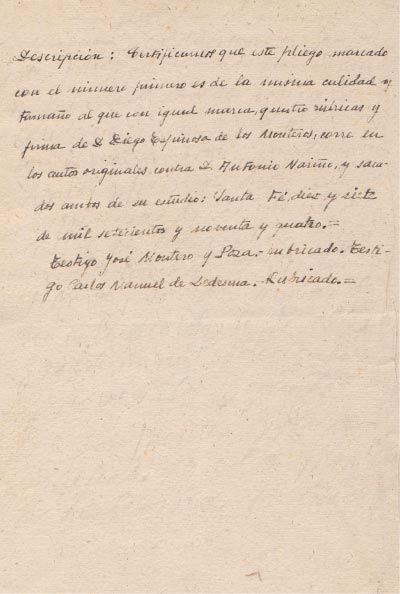 Descripción: Certificamos que este pliego marcado
con el número primero es de la misma calidad y
tamaño al que con igual marca, quatro rúbricas y
firma de D. Diego Espinosa de los Monteros, corre en
los autos originales contra D. Antonio Nariño, y saca-
dos ambos de su estudio: Santa Fé diez y siete
de mil setecientos y noventa y quatro.=
Testigo José Montero y Paza.- rubricado. Testi-
go Carlos Manuel de Ledesma.- Rubricado.=